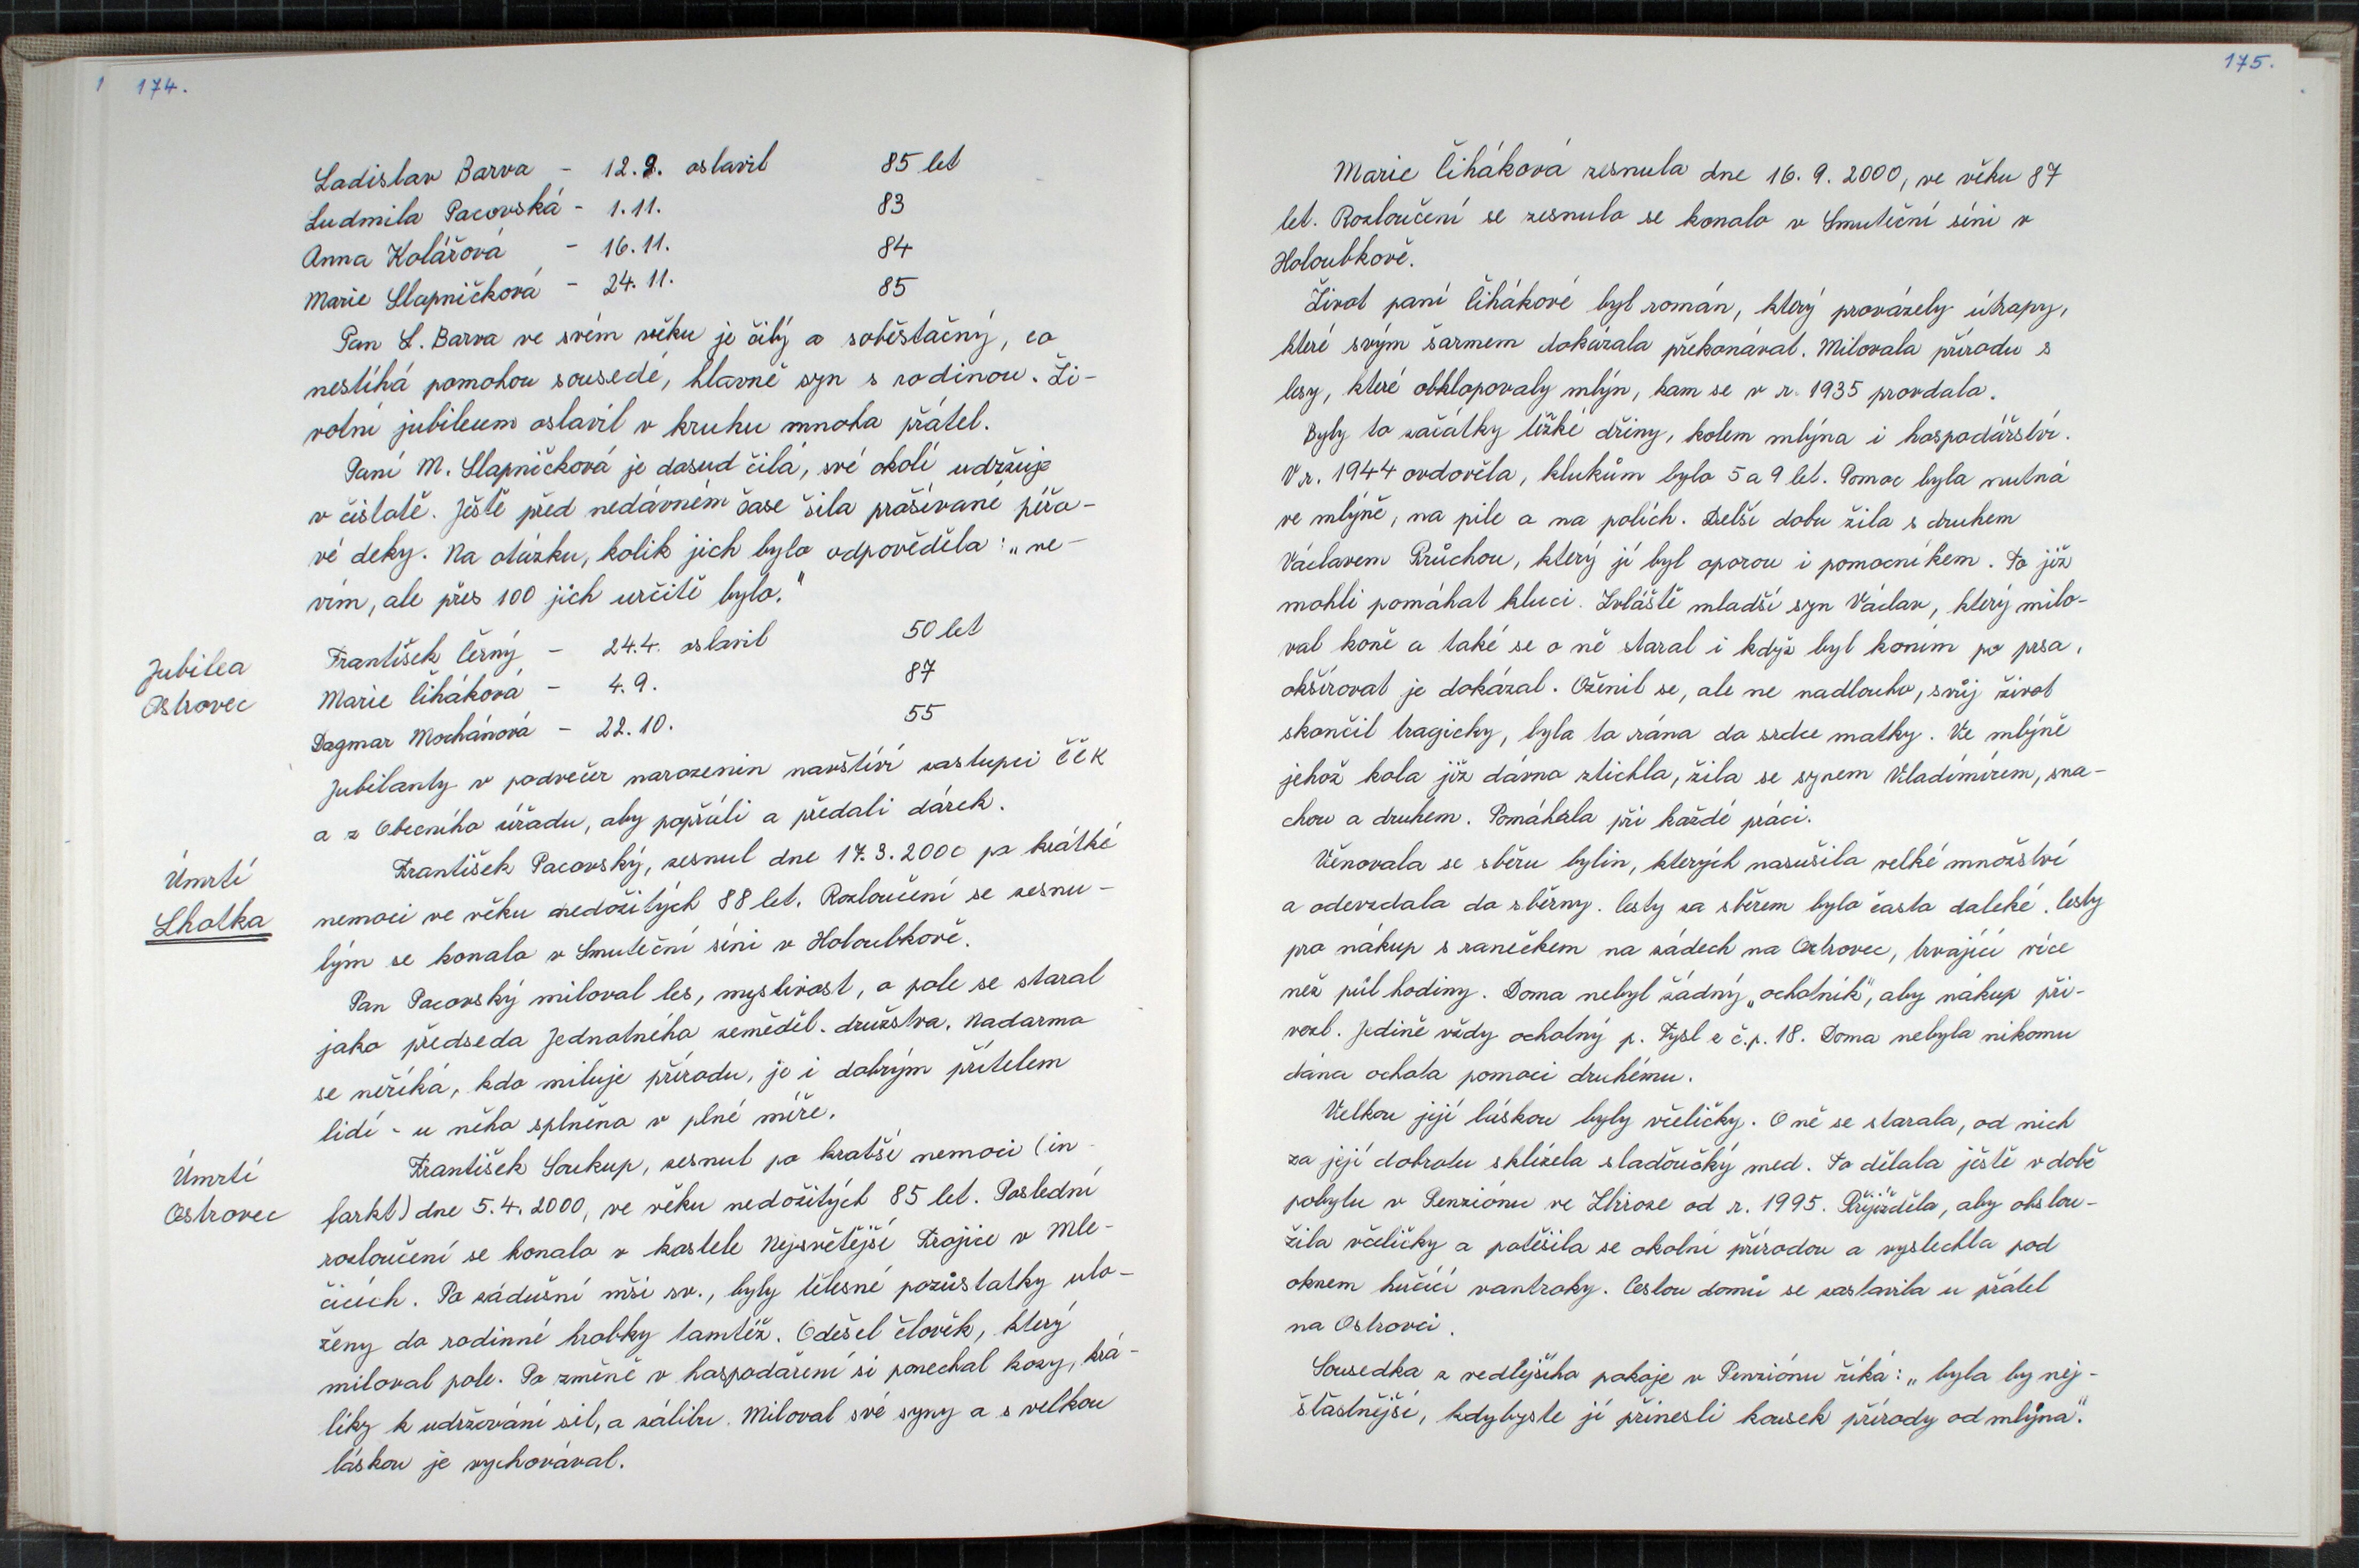 1 174.
Ladislav Barva - 12.9. oslavil 85 let
Ludmila Pacovská - 1.11. 83
Anna Kolářová - 16.11. 84
Marie Slapničková - 24.11. 85
Pan L. Barva ve svém věku je čilý a soběstačný, co
nestíhá pomohou sousedé, hlavně syn s rodinou. Ži-
votní jubileum oslavil v kruhu mnoha přátel.
Paní M. Slapničková je dosud čilá, své okolí udržuje
v čistotě. Ještě před nedávném čase šila prošívané péřo-
vé deky. Na otázku, kolik jich bylo odpověděla: „ne-
vím, ale přes 100 jich určitě bylo."
Jubilea
Ostrovec
František Černý - 24.4. oslavil 50 let
Marie Čiháková - 4.9. 87
Dagmar Mochánová - 22.10. 55
Jubilanty v podvečer narozenin navštíví zástupci ČČK
a z Obecního úřadu, aby popřáli a předali dárek.
Úmrtí
Lhotka
František Pacovský, zesnul dne 17.3.2000 po krátké
nemoci ve věku nedožitých 88 let. Rozloučení se zesnu-
lým se konalo v Smuteční síni v Holoubkově.
Pan Pacovský miloval les, myslivost, o pole se staral
jako předseda Jednotného zeměděl. družstva. Nadarmo
se neříká, kdo miluje přírodu, je i dobrým přítelem
lidí - u něho splněno v plné míře.
Úmrtí
Ostrovec
František Soukup, zesnul po kratší nemoci (in-
farkt) dne 5.4.2000, ve věku nedožitých 85 let. Poslední
rozloučení se konalo v kostele Nejsvětější Trojice v Mle-
čicích. Po zádušní mši sv., byly tělesné pozůstatky ulo-
ženy do rodinné hrobky tamtéž. Odešel člověk, který
miloval pole. Po změně v hospodaření si ponechal kozy, krá-
líky k udržování sil, a zálibu. Miloval své syny a s velkou
láskou je vychovával.
175.
Marie Čiháková zesnula dne 16. 9. 2000, ve věku 87
let. Rozloučení se zesnulo se konalo v Smuteční síni v
Holoubkově.
Život paní Čihákové byl román, který provázely útrapy,
které svým šarmem dokázala překonávat. Milovala přírodu s
lesy, které obklopovaly mlýn, kam se v r. 1935 provdala.
Byly to začátky těžké dřiny, kolem mlýna i hospodářství.
V r. 1944 ovdověla, klukům bylo 5 a 9 let. Pomoc byla nutná
ve mlýně, na pile a na polích. Delší dobu žila s druhem
Václavem Průchou, který jí byl oporou i pomocníkem. To již
mohli pomáhat kluci. Zvláště mladší syn Václav, který milo-
val koně a také se o ně staral i když byl koním po prsa,
okšírovat je dokázal. Oženil se, ale ne nadlouho, svůj život
skončil tragicky, byla to rána do srdce matky. Ve mlýně
jehož kola již dávno ztichla, žila se synem Vladimírem, sna-
chou a druhem. Pomáhala při každé práci.
Věnovala se sběru bylin, kterých nasušila velké množství
a odevzdala do sběrny. Cesty za sběrem bylo často daleké. Cesty
pro nákup s ranečkem na zádech na Ostrovec, trvající více
než půl hodiny. Doma nebyl žádný „ochotník", aby nákup při-
vezl. Jedině vždy ochotný p. Fysl z č.p. 18. Doma nebyla nikomu
dána ochota pomoci druhému.
Velkou její láskou byly včeličky. O ně se starala, od nich
za její dobrotu sklízela slaďoučký med. To dělala ještě v době
pobytu v Penziónu ve Zbiroze od r. 1995. Přijížděla, aby obslou-
žila včeličky a potěšila se okolní přírodou a vyslechla pod
oknem hučící vantroky. Cestou domů se zastavila u přátel
na Ostrovci.
Sousedka z vedlejšího pokoje v Penziónu říká: „byla by nej-
šťastnější, kdybyste jí přinesli kousek přírody od mlýna".